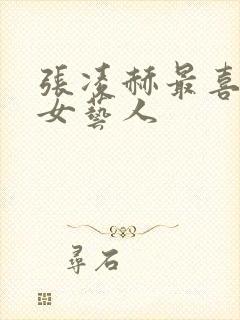 張凌赫最喜
女藝人
尋石